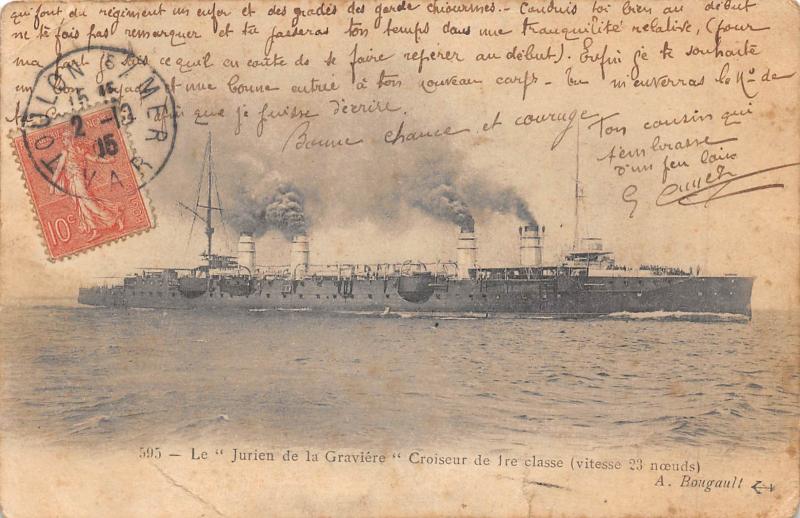 qui font du régiment un enfer et des gradés des garde chiourmes.- Conduis toi bien au début
ne te fais pas remarquer et tu passeras ton temps dans une tranquilité relative, (pour
ma part je sais ce qu'il en coûte de se faire repérer au début). Enfin je te souhaite
un bon et une bonne entrée à ton nouveau corps - Tu m'enverras le No de
afin que je puisse t'écrire.
Bonne chance et courage.
Ton cousin qui
t'embrasse
d'un peu loin
TOULON S/MER
15
2 -
15
VAR
10c
595 – Le " Jurien de la Graviére " Croiseur de 1re classe (vitesse 23 nœuds)
A. Bougault